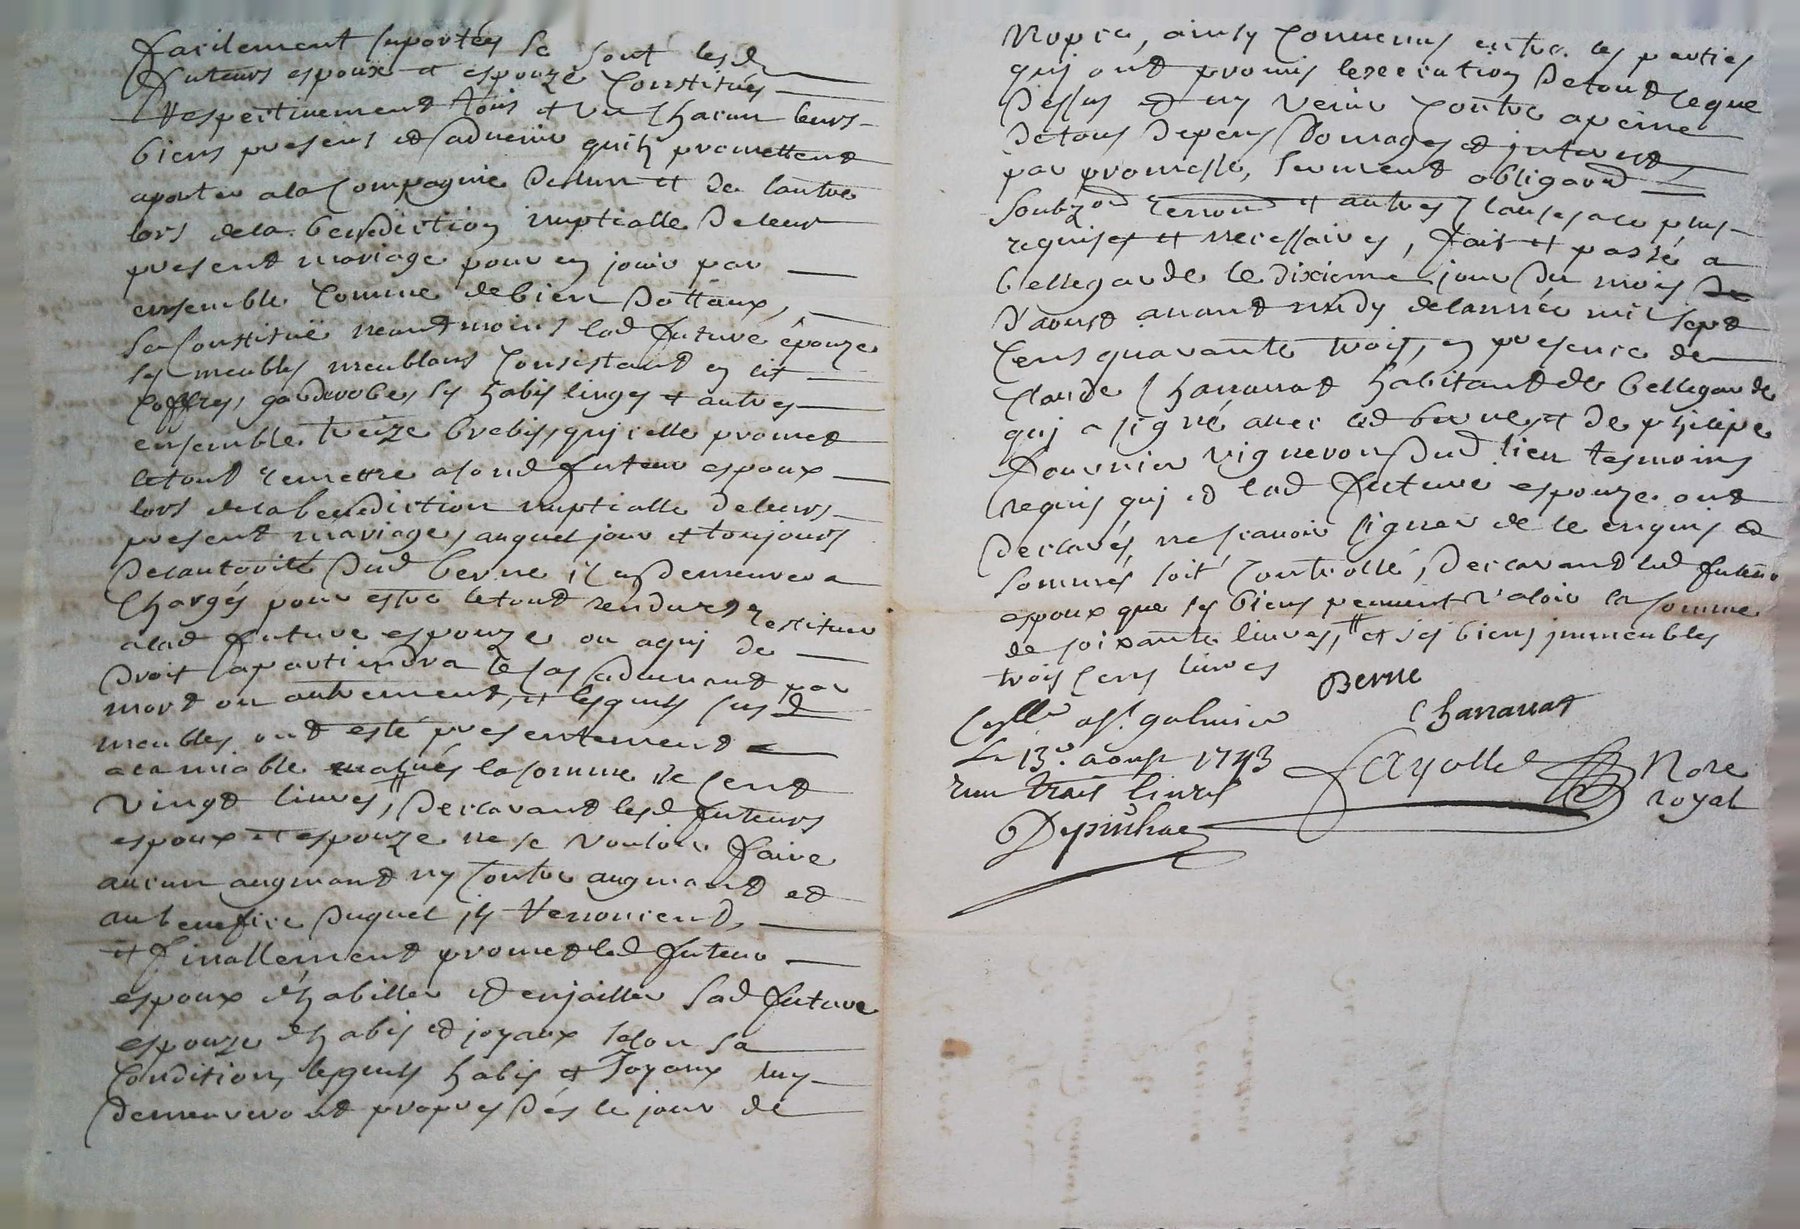 facilement suportés se sont lesd
futeurs espoux et espouze constitués
respectivement tous et un chacun leurs
biens presens et advenir quils promettent
aporter a la compagnie de lun et de lautre
lors de la benediction nuptialle de leur
present mariage pour en jouir par
ensemble comme de bien dottaux,
se constitue neantmoins lad future épouze
ses meubles meublans consistant en lit
coffres, garderobes ses habis linges et autres
ensemble treize brebis, quicelle promet
le tout remettre a sond futeur espoux
lors de la benediction nuptialle de leurs
present mariage, auquel jour et toujours
de lautorité dud berne il en demeurera
chargés pour estre le tout rendu et restituer
a lad future espouze ou a qui de
droit apartiendra le cas advenant par
mort ou autrement, et lesquels susd
meubles ont esté presentement
a lamiable evalués la somme de cent
vingt livres, declarant lesd futeurs
espoux et espouze ne se vouloir faire
aucun augmant ny contre augmant et
au benefice duquel ils renoncent,
et finallement promet led futeur
espoux d'habiller et enjoailler sad future
espouze d'habis et joyaux selon sa
condition, lesquels habis et joyaux luy
demeureront propres dés le jour de
nopce, ainsy convenus entre les parties
qui ont promis lexecution de tout ce que
dessus et ny venir contre a peine
de tous depens domages et interest,
par promesse, serment obligaon
soubzon renon et autres clauses a ce plus
requises et necessaires, fait et passé a
bellegarde le dixieme jour du mois de
d'aoust avant midy de lannée mil sept
cens quarante trois, en presence de
claude Chanavat habitant de bellegarde
qui a signé avec led berne, et de philipe
fournier vigneron dud lieu tesmoins
requis qui et lad future espouze ont
declarés ne scavoir signer de ce enquis et
sommés soit controllé, declarant led futeur
espoux que ses biens peuvent valoir la somme
de soixante livres, et ses biens immeubles
trois cens livres
Berne
Chanavat
Conllé a St. galmier
Le 13e. aoust 1743
recu trois livres
Depinhac
Cayolle Nore
royal